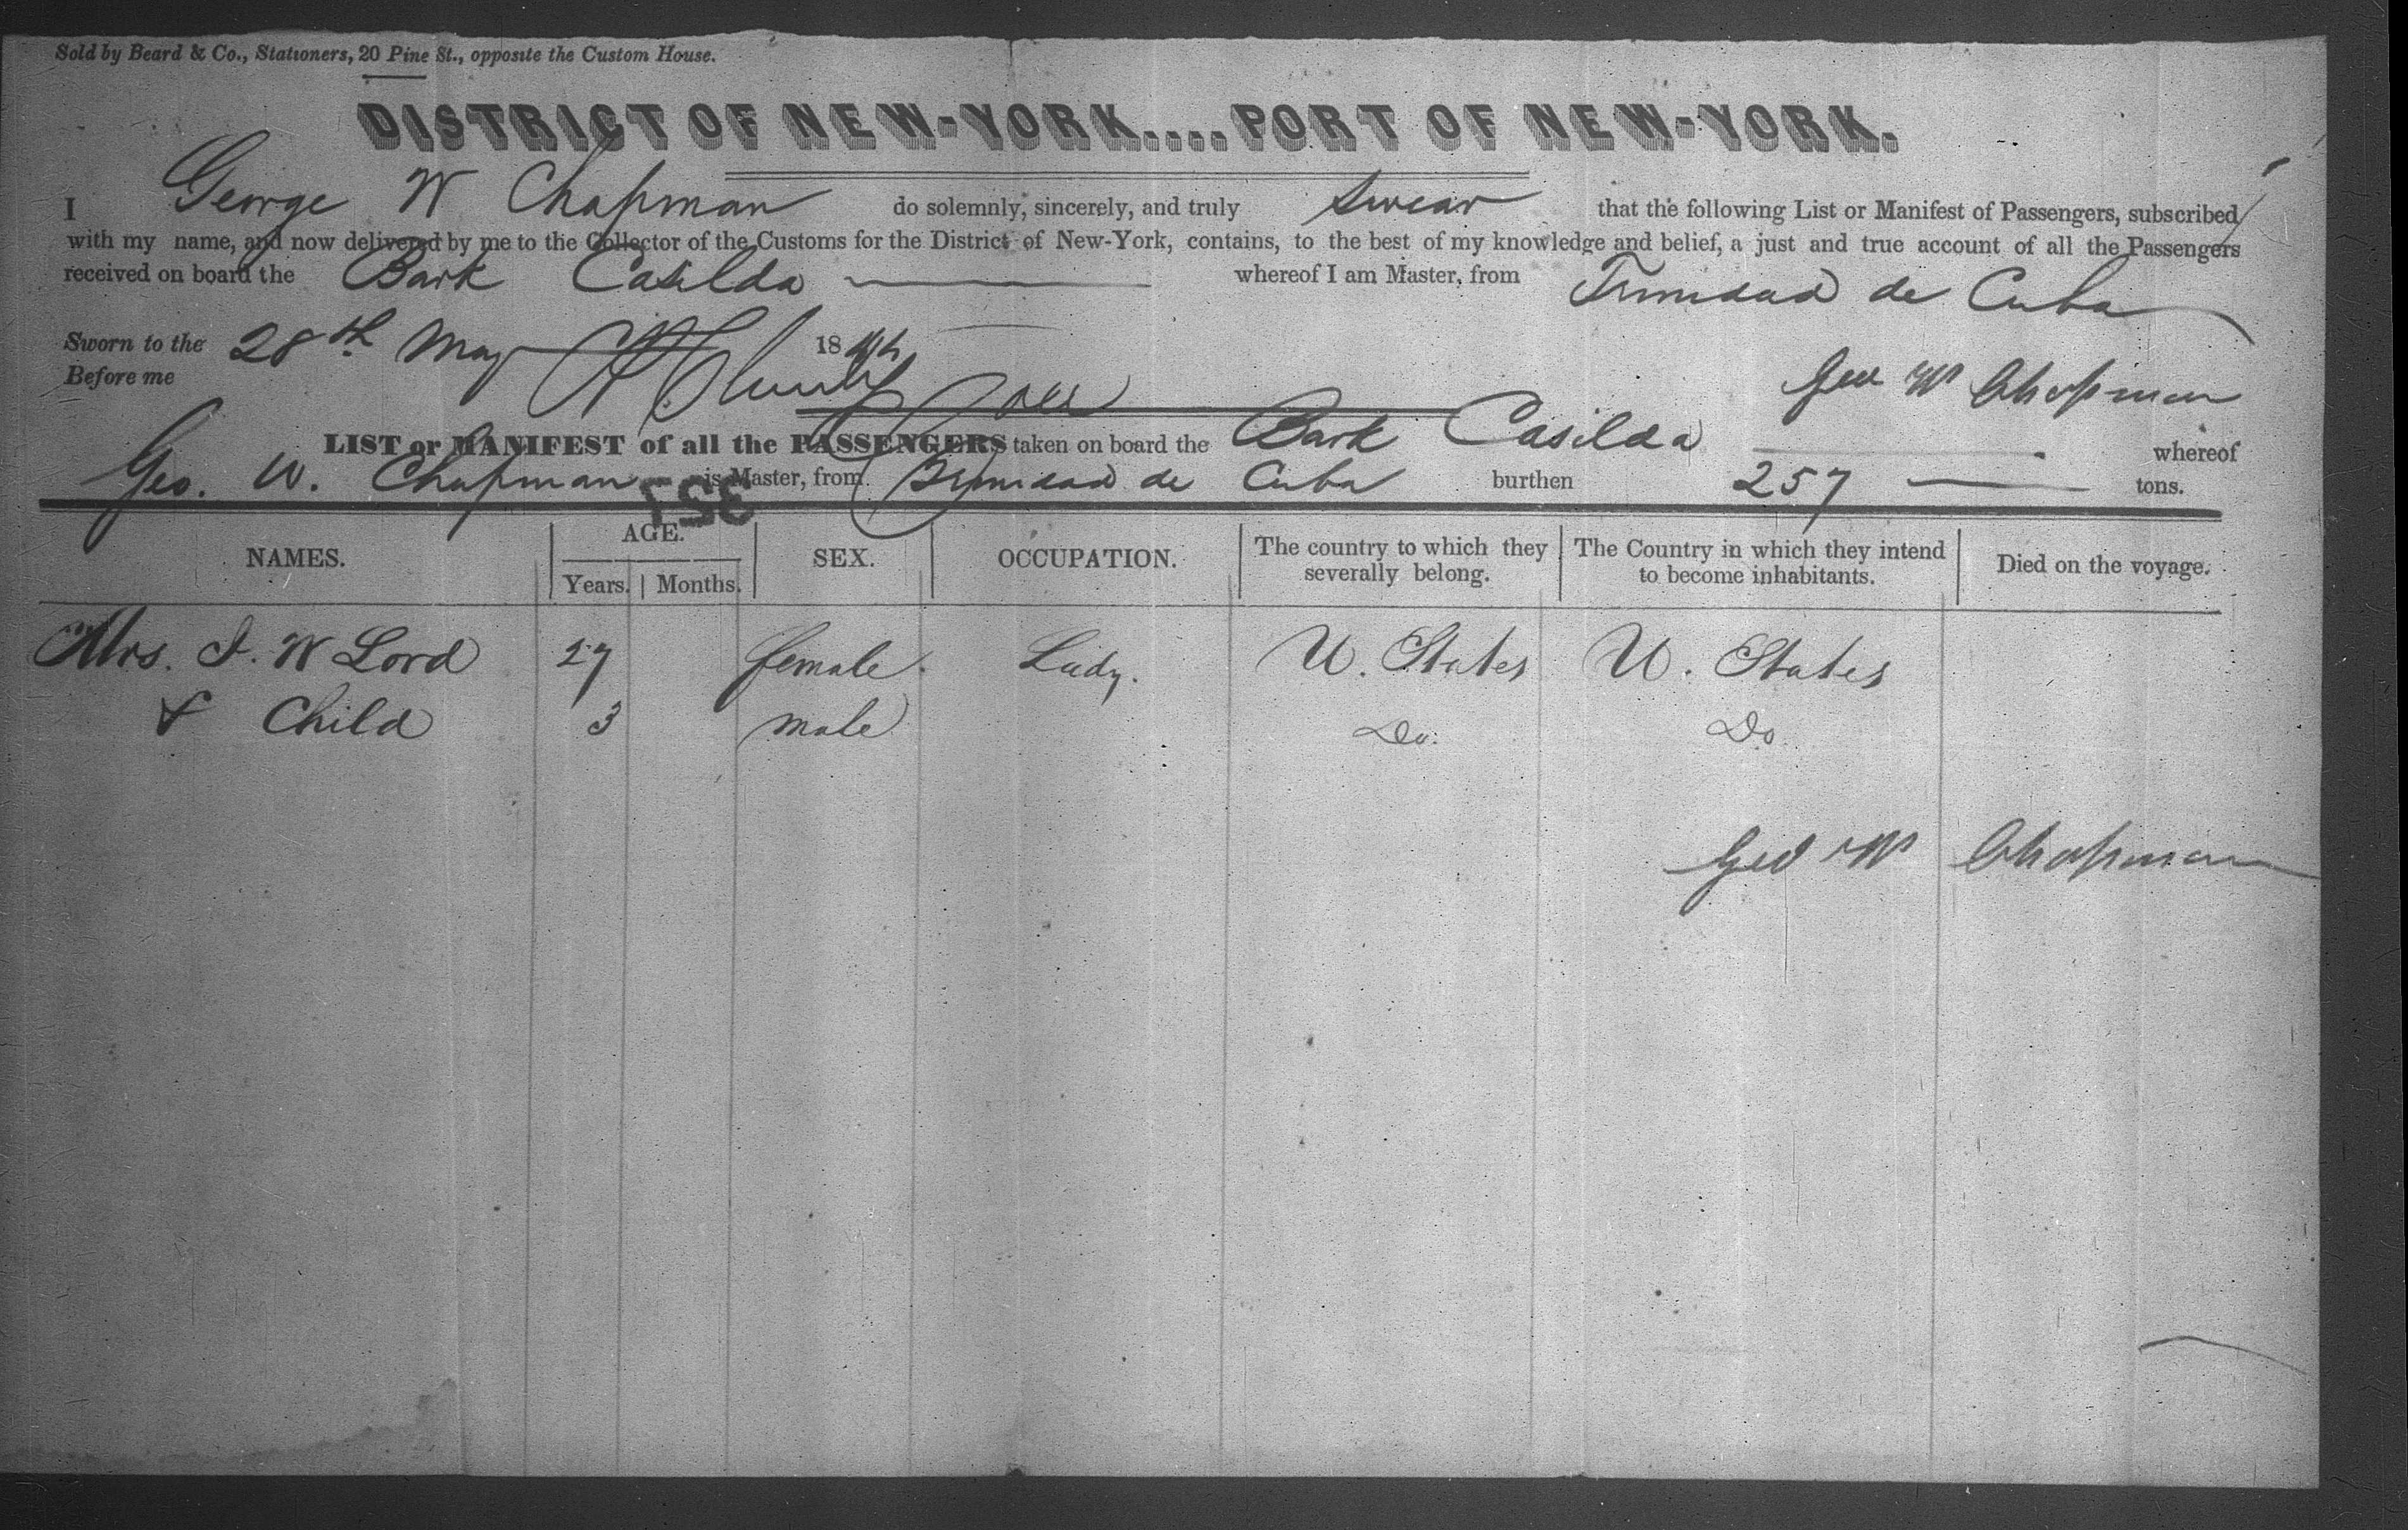 Sold by Beard & Co., Stationers, 20 Pine St., opposite the Custom House.
DISTRICT OF NEW-YORK....PORT OF NEW-YORK.
I George W Chapman do solemnly, sincerely, and truly swear that the following List or Manifest of Passengers, subscribed
with my name, and now delivered by me to the Collector of the Customs for the District of New-York, contains, to the best of my knowledge and belief, a just and true account of all the Passengers
received on board the Bark Casilda whereof I am Master, from Trinidad de Cuba
Sworn to the 28th May 18
Before me
Geo W Chapman
LIST or MANIFEST of all the PASSENGERS taken on board the Bark Casilda whereof
Geo. W. Chapman is Master, from Trinidad de Cuba burthen 257 tons.
357
NAMES. AGE. SEX. OCCUPATION. The country to which they severally belong. The Country in which they intend to become inhabitants. Died on the voyage.
Years. Months.
Mrs. I. W Lord 27 female Lady. U. States U. States
& Child 3 male Do. Do
Geo W Chapman